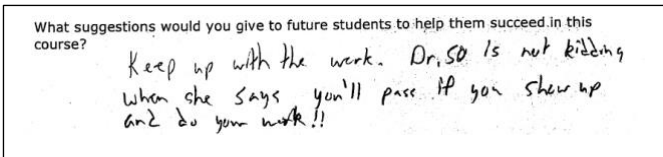 What suggestions would you give to future students to help them succeed in this
course?
Keep up with the work. Dr. So is not kidding
when she says you'll pass if you show up
and do your work!!